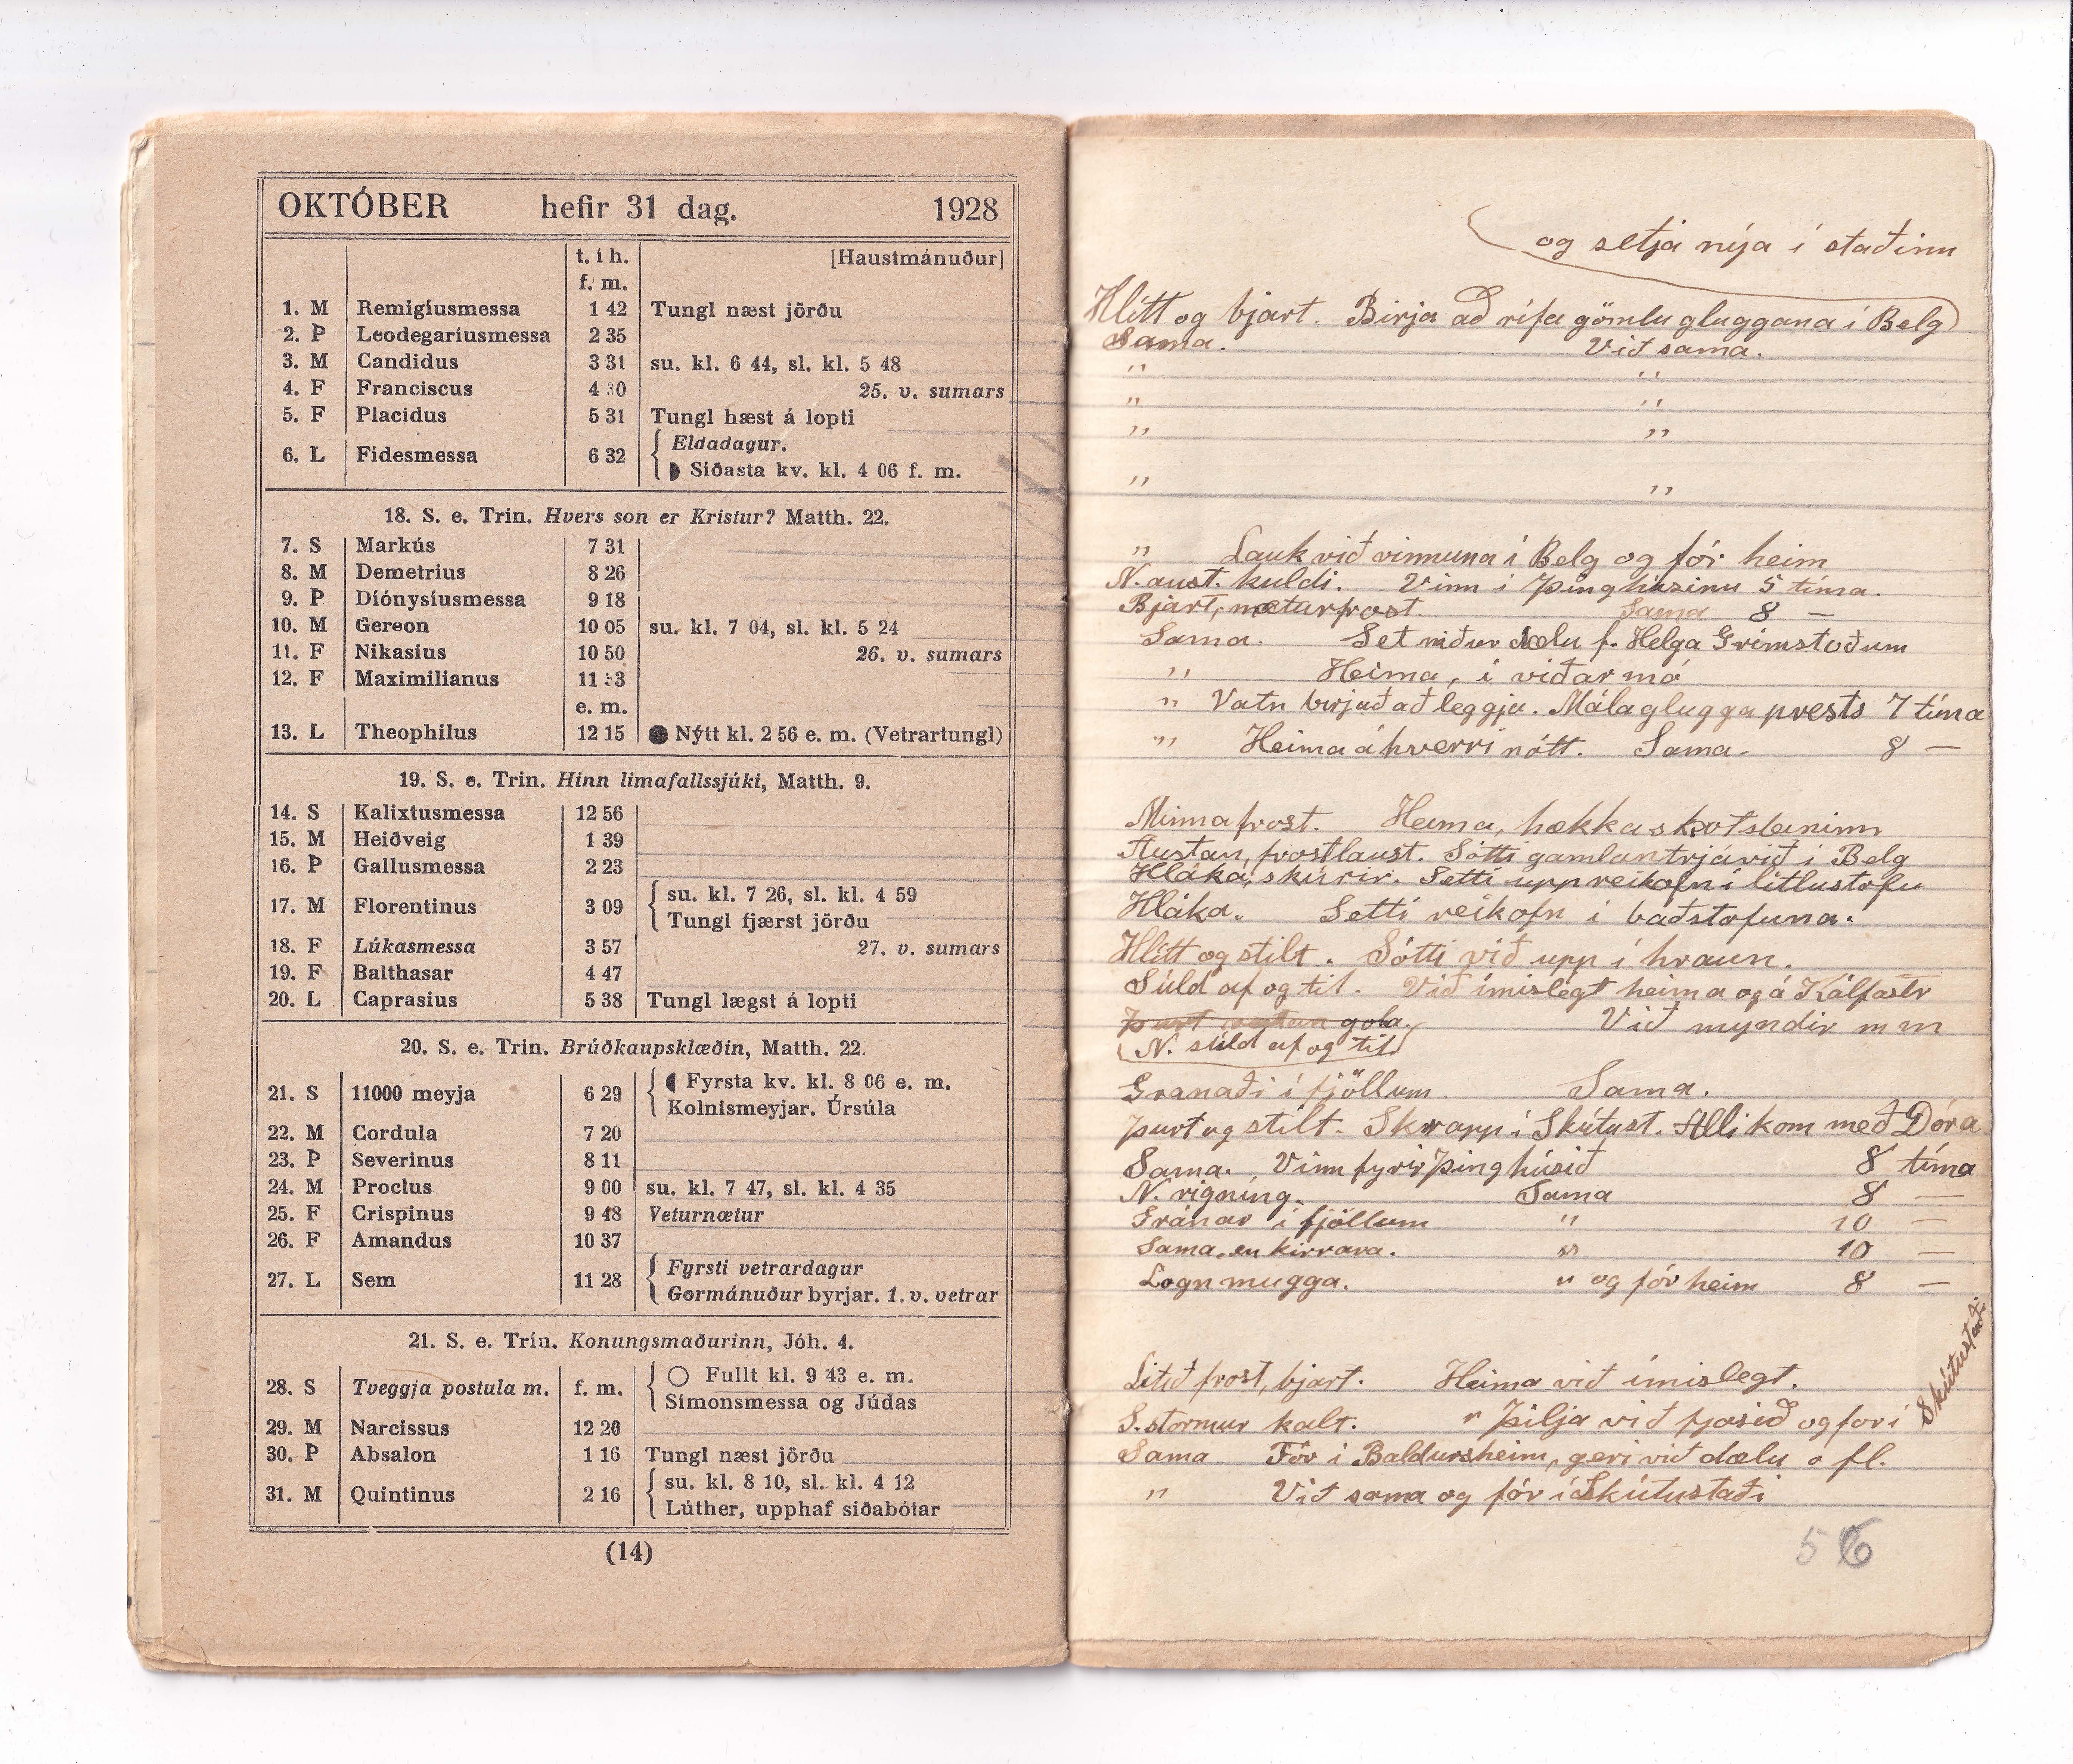 OKTÓBER hefir 31 dag. 1928
t. í h. [Haustmánuður]
f. m.
1. M Remigíusmessa 1 42 Tungl næst jörðu
2. Þ Leodegaríusmessa 2 35
3. M Candidus 3 31 su. kl. 6 44, sl. kl. 5 48
4. F Franciscus 4 30 25. v. sumars
5. F Placidus 5 31 Tungl hæst á lopti
Eldadagur.
6. L Fídesmessa 6 32
Síðasta kv. kl. 4 06 f. m.
18. S. e. Trin. Hvers son er Kristur? Matth. 22.
7. S Markús 7 31
8. M Demetrius 8 26
9. Þ Díónysíusmessa 9 18
10. M Gereon 10 05 su. kl. 7 04, sl. kl. 5 24
11. F Nikasius 10 50 26. v. sumars
12. F Maximilianus 11 33
e. m.
13. L Theophilus 12 15 Nýtt kl. 2 56 e. m. (Vetrartungl)
19. S. e. Trin. Hinn limafallssjúki, Matth. 9.
14. S Kalixtusmessa 12 56
15. M Heiðveig 1 39
16. Þ Gallusmessa 2 23
su. kl. 7 26, sl. kl. 4 59
17. M Florentinus 3 09
Tungl fjærst jörðu
18. F Lúkasmessa 3 57 27. v. sumars
19. F Balthasar 4 47
20. L Caprasius 5 38 Tungl lægst á lopti
20. S. e. Trin. Brúðkaupsklæðin, Matth. 22.
Fyrsta kv. kl. 8 06 e. m.
21. S 11000 meyja 6 29
Kolnismeyjar. Úrsúla
22. M Cordula 7 20
23. Þ Severinus 8 11
24. M Proclus 9 00 su. kl. 7 47, sl. kl. 4 35
25. F Crispinus 9 48 Veturnætur
26. F Amandus 10 37
Fyrsti vetrardagur
27. L Sem 11 28
Gormánuður byrjar. 1. v. vetrar
21. S. e. Trín. Konungsmaðurinn, Jóh. 4.
Fullt kl. 9 43 e. m.
28. S Tveggja postula m. f. m.
Símonsmessa og Júdas
29. M Narcissus 12 20
30. Þ Absalon 1 16 Tungl næst jörðu
su. kl. 8 10, sl. kl. 4 12
31. M Quintinus 2 16
Lúther, upphaf siðabótar
(14)
og setja nýja í staðinn
Hlítt og bjart. Birja að rífa gömlu gluggana í Belg
Sama. Við sama.
" "
" "
" "
" "
" Lauk við vinnuna í Belg og fór heim
N. aust. kuldi. Vinn í Þinghúsinu 5 tíma.
Bjart, næturfrost. Sama 8 —
Sama. Set niður dælu f. Helga Grímstoðum
" Heima, í viðarmó
" Vatn birjað að leggja. Mála glugga prests 7 tíma
" Heima á hverri nótt. Sama. 8 —
Minna frost. Heima, hækka skotsteininn
Austan, frostlaust. Sótti gamlan trjávið í Belg
Hláka, skúrir. Setti upp reikofn í litlustofu
Hláka. Setti reikofn í baðstofuna.
Hlítt og stilt. Sótti við upp í hraun.
Súld af og til. Við ímislegt heima og á Kálfastr
Þurt vestan gola. Við myndir m m
N. súld af og til
Granaði í fjöllum. Sama.
Þurt og stilt. Skrapp í Skútust. Alli kom með Dóra
Sama. Vinn fyrir Þinghúsið 8 tíma
N. rigníng. Sama 8 —
Gránar í fjöllum " 10 —
Sama, en kirrara. " 10 —
Logn mugga. " og fór heim 8 —
Lítið frost, bjart. Heima við ímislegt.
S. stormur kalt. " Þilja við fjosið og for í Skútustaði
Sama Fór í Baldursheim, geri við dælu o fl.
" Við sama og fór í Skútustaði
56